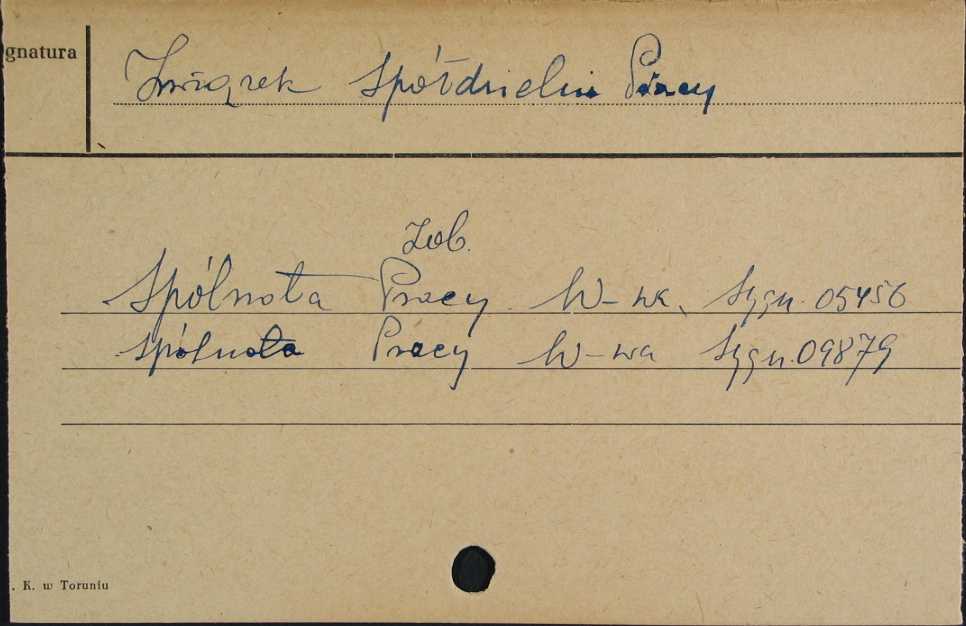 gnatura
Związek Spółdzielni Pracy
Zob.
Spólnota Pracy W-wa, Sygn. 05456
Spólnota Pracy W-wa Sygn. 09879
. K. w Toruniu